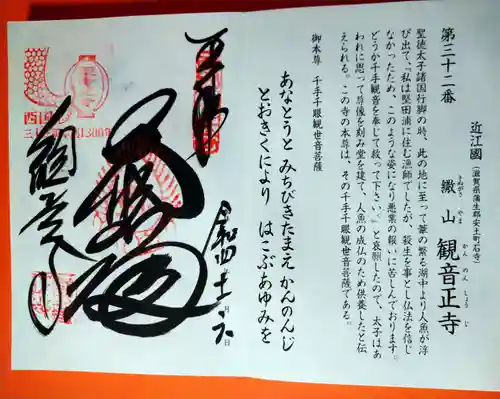 第三十二番
近江國
（滋賀県蒲生郡安土町石寺）
繖山 観音正寺
きぬがさ やま かん のん しょう じ
聖徳太子諸国行脚の時、此の地に至って葦の繁る湖中より人魚が浮
び出て、『私は堅田浦に住む漁師でしたが、殺生を事とし仏法を信じ
なかったため、このような姿になり悪業の報いに苦しんでおります。
どうか千手観音を奉じて救って下さい。』と哀願したので、太子はあ
われに思って尊像を刻み堂を建て、人魚の成仏のため供養したと伝
えられる。この寺の本尊は、その千手千眼観世音菩薩である。
御本尊 千手千眼観世音菩薩
あなとうと みちびきたまえ かんのんじ
とおきくにより はこぶあゆみを
奉拝
令和四 十一月 六日
観音正寺
西国
三十三所
1300年